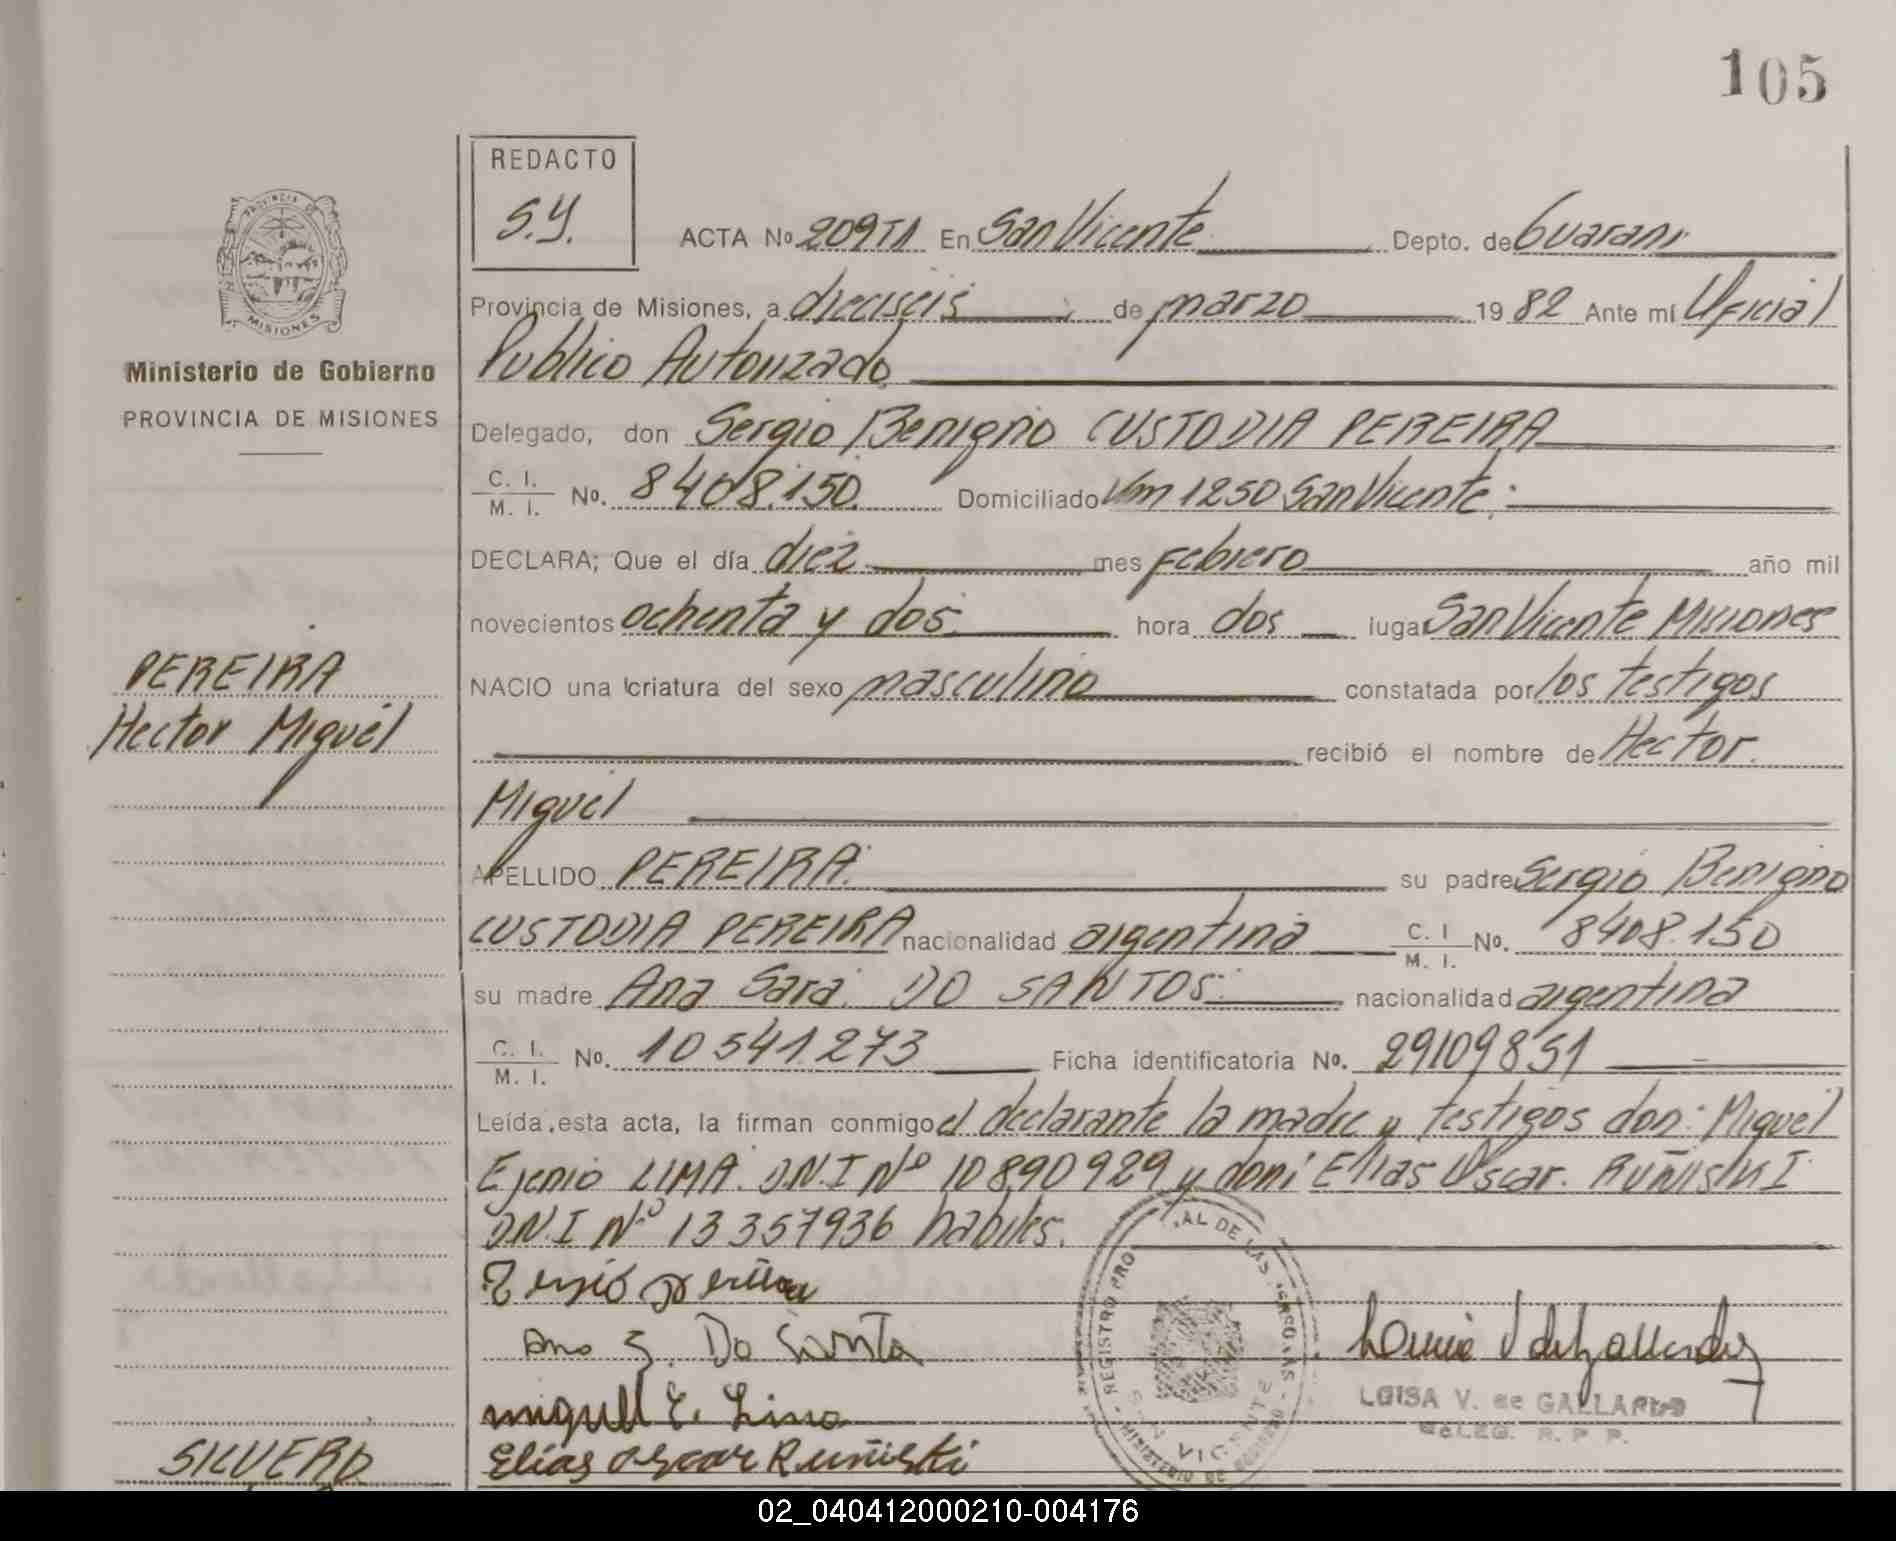 105
REDACTO
S.Y.
ACTA Nº 209TI En San Vicente Depto. de Guarani
Provincia de Misiones, a dieciseis de marzo 1982 Ante mí Oficial
Publico Autorizado
Delegado, don Sergio Benigno CUSTODIA PEREIRA
C. I.
M. I. No. 8408.150. Domiciliado Km 1250 San Vicente.
DECLARA; Que el día diez mes Febrero año mil
novecientos ochenta y dos hora dos lugar San Vicente Misiones
NACIO una criatura del sexo masculino constatada por los testigos
recibió el nombre de Hector
Miguel
APELLIDO PEREIRA su padre Sergio Benigno
CUSTODIA PEREIRA nacionalidad argentina C. I. M. I. No. 8408.150
su madre Ana Sara DO SANTOS nacionalidad argentina
C. I.
M. I. No. 10541273 Ficha identificatoria No. 29109851
Leída esta acta, la firman conmigo el declarante la madre y testigos don: Miguel
Ejenio LIMA. D.N.I Nº 10890929 y don: Elias Oscar. RUÑISKI
D.N.I Nº 13357936 habiles.
PROVINCIA DE
MISIONES
Ministerio de Gobierno
PROVINCIA DE MISIONES
PEREIRA
Hector Miguel
SILVERO
Ana S. Do Santa
miguel E. Lima
Elías Oscar Ruñiski
REGISTRO PRO AL DE LAS PERSONAS
SAN VICENTE
MINISTERIO DE GOBIERNO
LUISA V. de GALLARDO
DELEG. R. P. P.
02_040412000210-004176